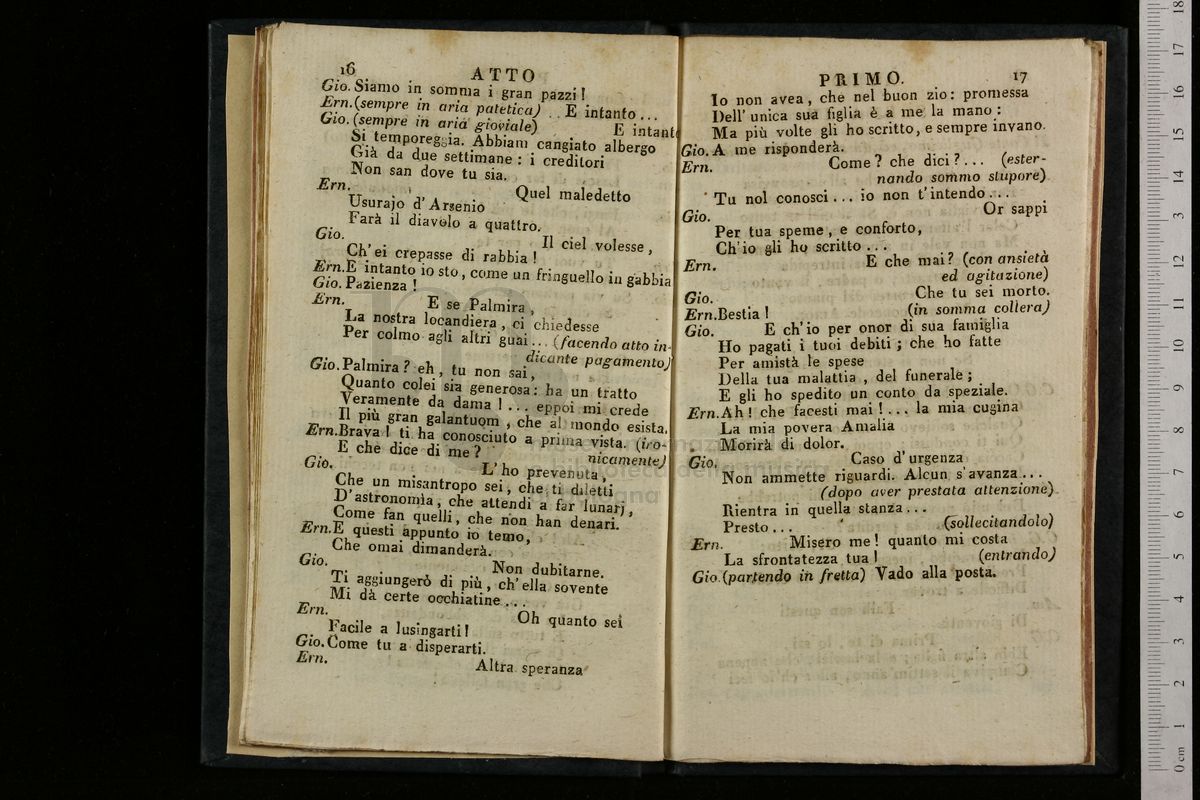 16 ATTO
Gio. Siamo in somma i gran pazzi!
Ern. (sempre in aria patetica) .. E intanto ...
Gio. (sempre in aria gioviale) E intant
Si temporeggia. Abbiam cangiato albergo
Già da due settimane: i creditori
Non san dove tu sia.
Ern. Quel maledetto
Usurajo d'Arsenio
Farà il diavolo a quattro.
Gio. Il ciel volesse,
Ch'ei crepasse di rabbia!
Ern. E intanto io sto, come un fringuello in gabbia
Gio. Pazienza!
Ern. E se Palmira,
La nostra locandiera, ci chiedesse
Per colmo agli altri guai... (facendo atto in-
dicante pagamento)
Gio. Palmira? eh, tu non sai,
Quanto colei sia generosa: ha un tratto
Veramente da dama!... eppoi mi crede
Il più gran galantuom, che al mondo esista.
Ern. Brava! ti ha conosciuto a prima vista. (iro-
nicamente)
E che dice di me?
Gio. L'ho prevenuta,
Che un misantropo sei, che ti diletti
D'astronomia, che attendi a far lunarj,
Come fan quelli, che non han denari.
Ern. E questi appunto io temo,
Che omai dimanderà.
Gio. Non dubitarne.
Ti aggiungerò di più, ch'ella sovente
Mi dà certe occhiatine...
Ern. Oh quanto sei
Facile a lusingarti!
Gio. Come tu a disperarti.
Ern. Altra speranza
PRIMO. 17
Io non avea, che nel buon zio: promessa
Dell'unica sua figlia è a me la mano:
Ma più volte gli ho scritto, e sempre invano.
Gio. A me risponderà.
Ern. Come? che dici?... (ester-
nando sommo stupore)
Tu nol conosci... io non t'intendo...
Gio. Or sappi
Per tua speme, e conforto,
Ch'io gli ho scritto...
Ern. E che mai? (con ansietà
ed agitazione)
Gio. Che tu sei morto.
Ern. Bestia! (in somma collera)
Gio. E ch'io per onor di sua famiglia
Ho pagati i tuoi debiti; che ho fatte
Per amistà le spese
Della tua malattia, del funerale;
E gli ho spedito un conto da speziale.
Ern. Ah! che facesti mai!... la mia cugina
La mia povera Amalia
Morirà di dolor.
Gio. Caso d'urgenza
Non ammette riguardi. Alcun s'avanza...
(dopo aver prestata attenzione)
Rientra in quella stanza...
Presto... (sollecitandolo)
Ern. Misero me! quanto mi costa
La sfrontatezza tua! (entrando)
Gio. (partendo in fretta) Vado alla posta.